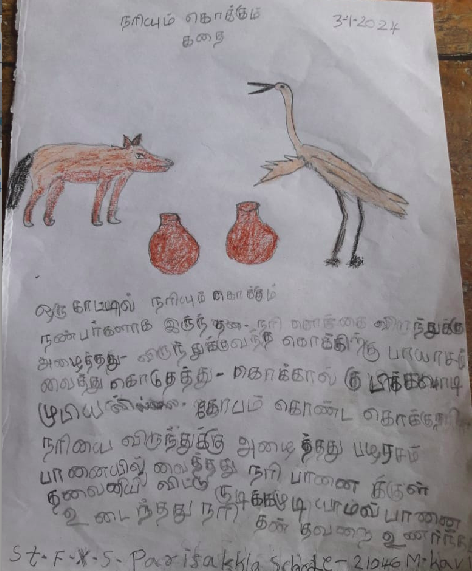 நரியும் கொக்கும் 3-1-2024
கதை
ஒரு காட்டில் நரியும் கொக்கும்
நண்பர்களாக இருந்தன- நரி கொக்கை விருந்துக்கு
அழைத்தது- விருந்துக்கு வந்த கொக்கிற்கு பாயாசம்
வைத்து கொடுத்தது- கொக்கால் குடிக்க
முடியவில்லை. கோபம் கொண்ட கொக்கு
நரியை விருந்துக்கு அழைத்தது பழரசம்
பானையில் வைத்தது நரி பானை க்குள்
தலையை விட்டு குடிக்க முடியாமல் பானை
உடைந்தது நரி தன் தவறை உணர்ந்தது
St. F. X. S. School - 21046